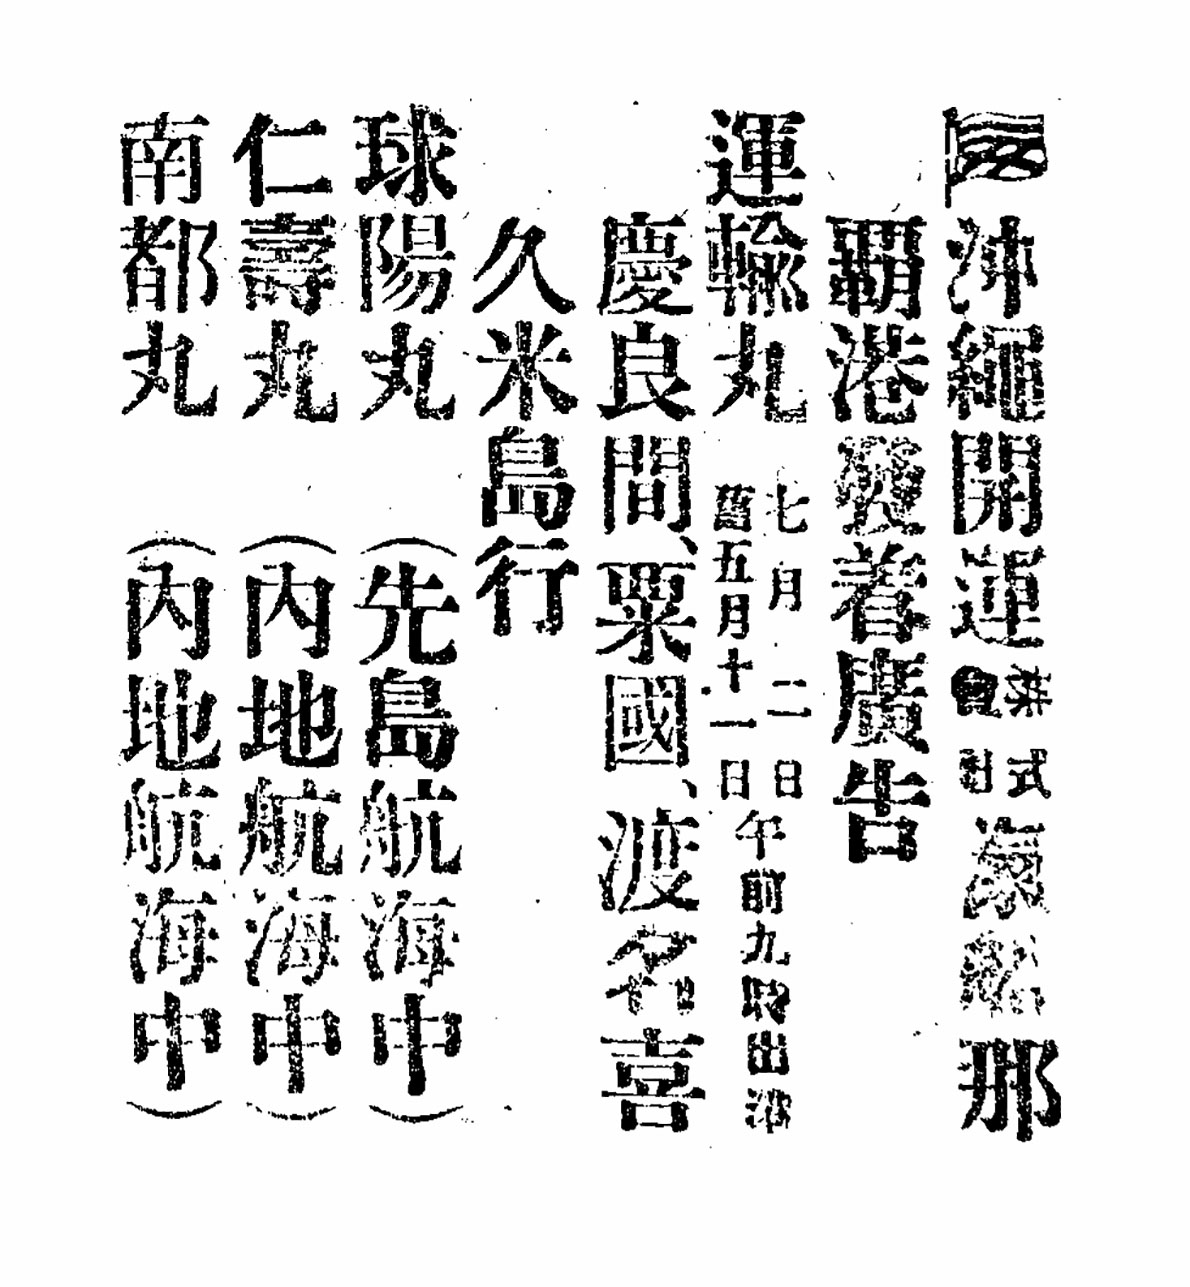 沖繩開運株式會社滊船那
覇港發着廣告
運輸丸 七月二日 舊五月十一日 午前九時出港
慶良間、粟國、渡名喜
久米島行
球陽丸 (先島航海中)
仁壽丸 (內地航海中)
南都丸 (內地航海中)